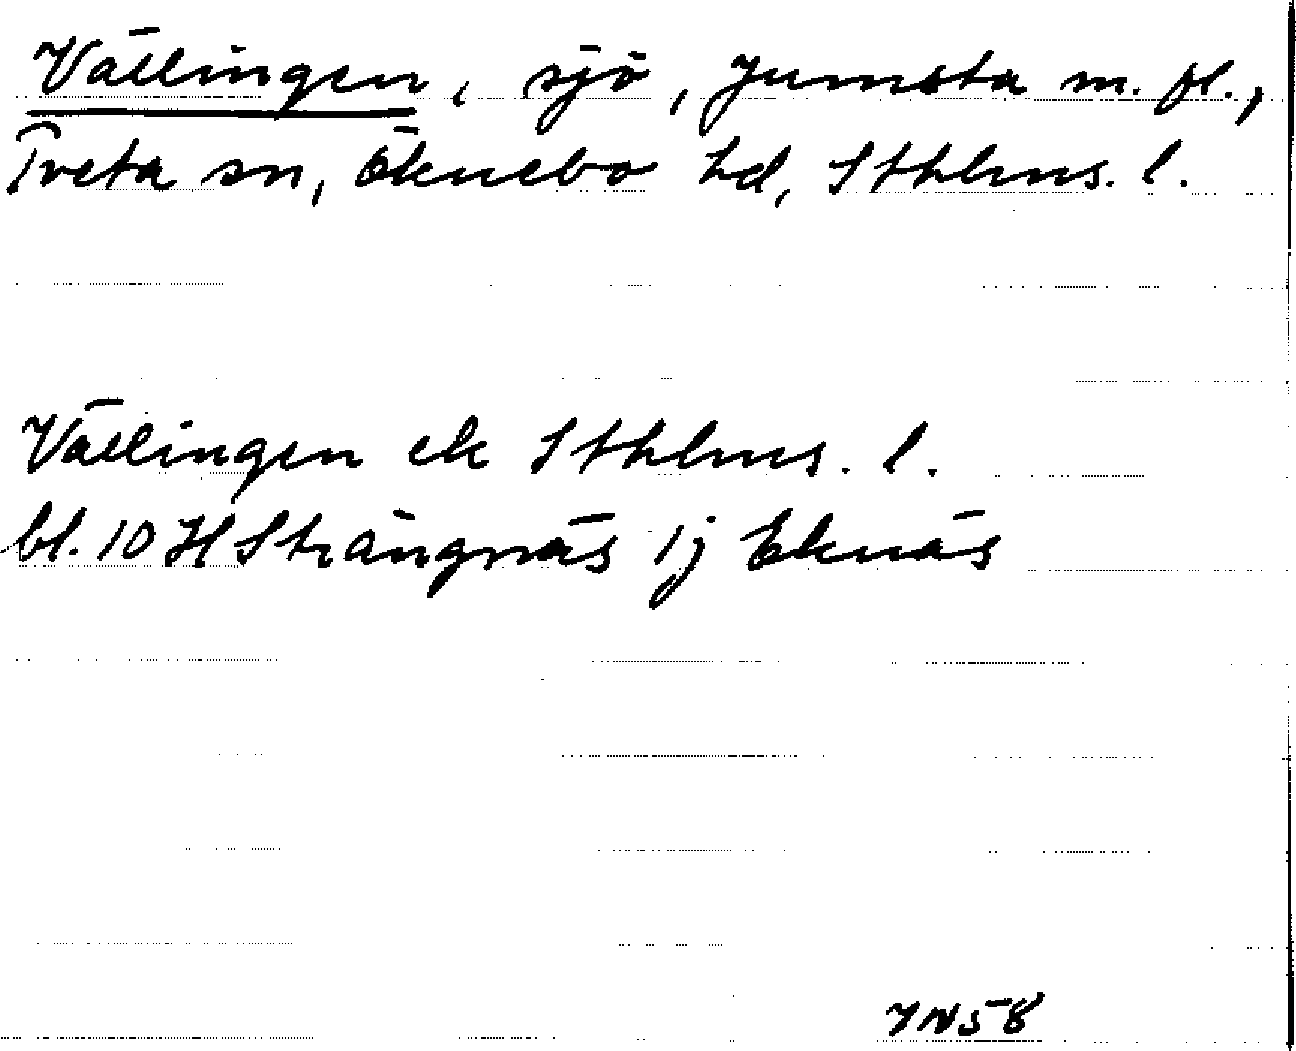 Vällingen, sjö, Jumsta m. fl.,
Tveta sn, Öknebo hd, Sthlms. l.
Vällingen ek Sthlms. l.
bl. 10 H Strängnäs 1j Eknäs
JN58